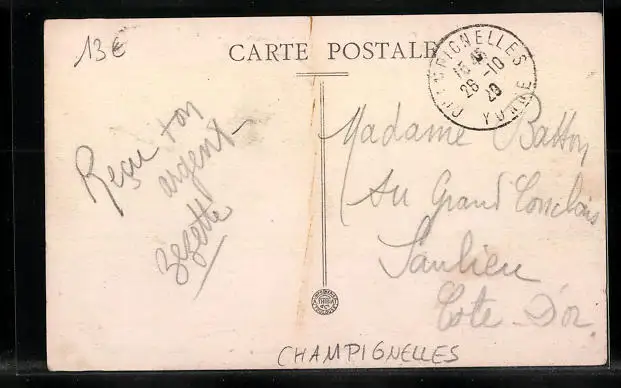 13€
CARTE POSTALE
CHAMPIGNELLES
15 45
26 -10
YONNE
Reçu ton
argent
Zezette
Madame Batton
Au Grand Conclois
Saulieu
Cote D'or
CHAMPIGNELLES